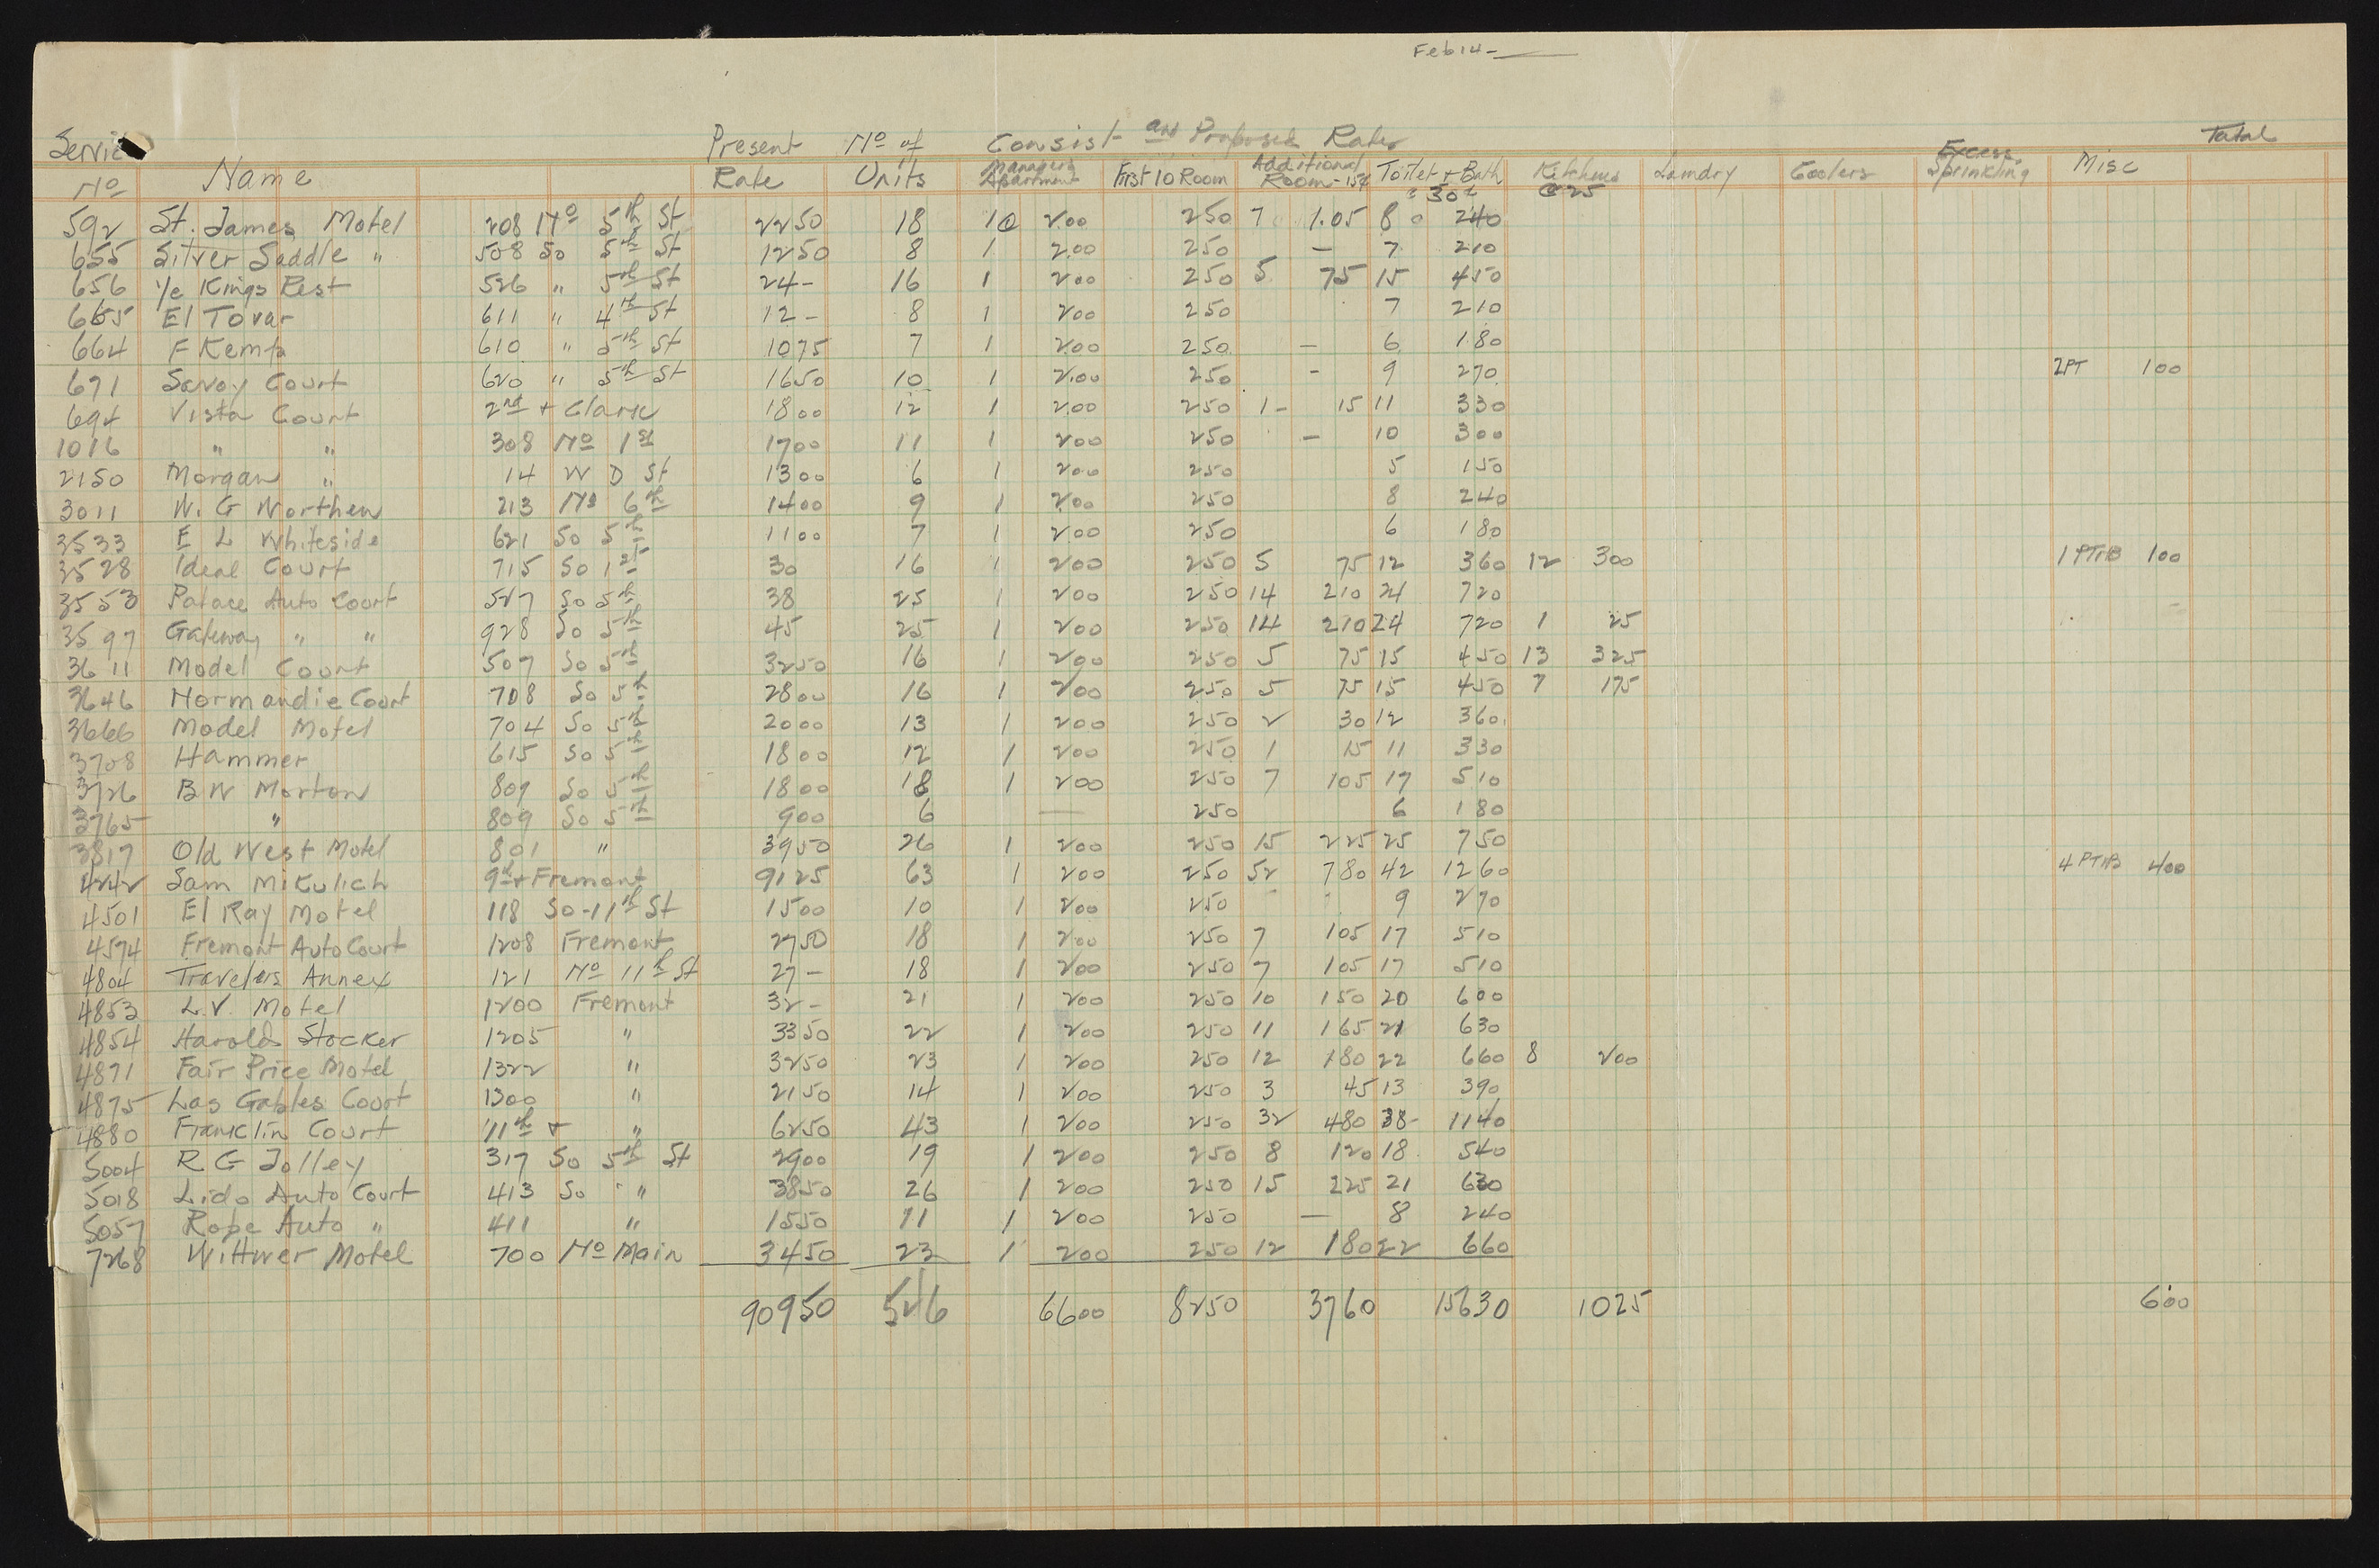 Feb 14-
Present No of Consist and Proposed Rates Total
Service Name Rate Units Managers Apartment First 10 Room Additional Room - 15¢ Toilet + Bath Kitchens Laundry Coolers Excess Sprinkling Misc
No 30¢ @ 25
592 St. James Motel 208 No 5th St 2250 18 1 2.00 250 7 1.05 8 240
655 Silver Saddle " 508 So 5th St 1250 8 1 2.00 250 — 7 210
656 Ye Kings Rest 526 " 5th St 24- 16 1 200 250 5 75 15 450
665 El Tovar 611 " 4th St 12- 8 1 200 250 7 210
664 F Kemp 610 " 5th St 1075 7 1 200 250 — 6 180
671 Savoy Court 620 " 5th St 1650 10 1 2.00 250 - 9 270 2PT 100
694 Vista Court 2nd + Clark 1800 12 1 200 250 1- 15 11 330
1016 " " 308 No 1st 1700 11 1 200 250 — 10 300
2150 Morgan " 14 W D St 1300 6 1 200 250 5 150
3011 W. G Worthen 213 No 6th 1400 9 1 200 250 8 240
3533 E L Whiteside 621 So 5th 1100 7 1 200 250 6 180
3528 Ideal Court 715 So 1st 30 16 1 200 250 5 75 12 360 12 300 1 PTrB 100
3553 Palace Auto Court 527 So 5th 38 25 1 200 250 14 210 24 720
3597 Gateway " " 928 So 5th 45 25 1 200 250 14 210 24 720 1 25
3611 Model Court 507 So 5th 3250 16 1 200 250 5 75 15 450 13 325
3646 Normandie Court 708 So 5th 2800 16 1 200 250 5 75 15 450 7 175
3666 Model Motel 704 So 5th 2000 13 1 200 250 2 30 12 360
3708 Hammer 615 So 5th 1800 12 1 200 250 1 15 11 330
3726 B W Morton 809 So 5th 1800 18 1 200 250 7 105 17 510
3765 " 809 So 5th 900 6 — 250 6 180
3817 Old West Motel 801 " 3950 26 1 200 250 15 225 25 750
4242 Sam Mikulich 9th + Fremont 9125 63 1 200 250 52 780 42 1260 4 PTrB 400
4501 El Ray Motel 118 So - 11th St 1500 10 1 200 250 9 270
4574 Fremont Auto Court 1208 Fremont 2750 18 1 200 250 7 105 17 510
4804 Travelers Annex 121 No 11th St 27- 18 1 200 250 7 105 17 510
4853 L.V. Motel 1200 Fremont 32- 21 1 200 250 10 150 20 600
4854 Harold Stocker 1205 " 3350 22 1 200 250 11 165 21 630
4871 Fair Price Motel 1322 " 3250 23 1 200 250 12 180 22 660 8 200
4875 Las Gables Court 1300 " 2150 14 1 200 250 3 45 13 390
4880 Franklin Court 11th + " 6250 43 1 200 250 32 480 38- 1140
5004 R G Jolley 317 So 5th St 2900 19 1 200 250 8 120 18 540
5018 Lido Auto Court 413 So " 3850 26 1 200 250 15 225 21 630
5057 Rope Auto " 411 " 1550 11 1 200 250 — 8 240
7268 Wittwer Motel 700 No Main 3450 23 1 200 250 12 180 22 660
90950 546 6600 8250 3760 15630 1025 600